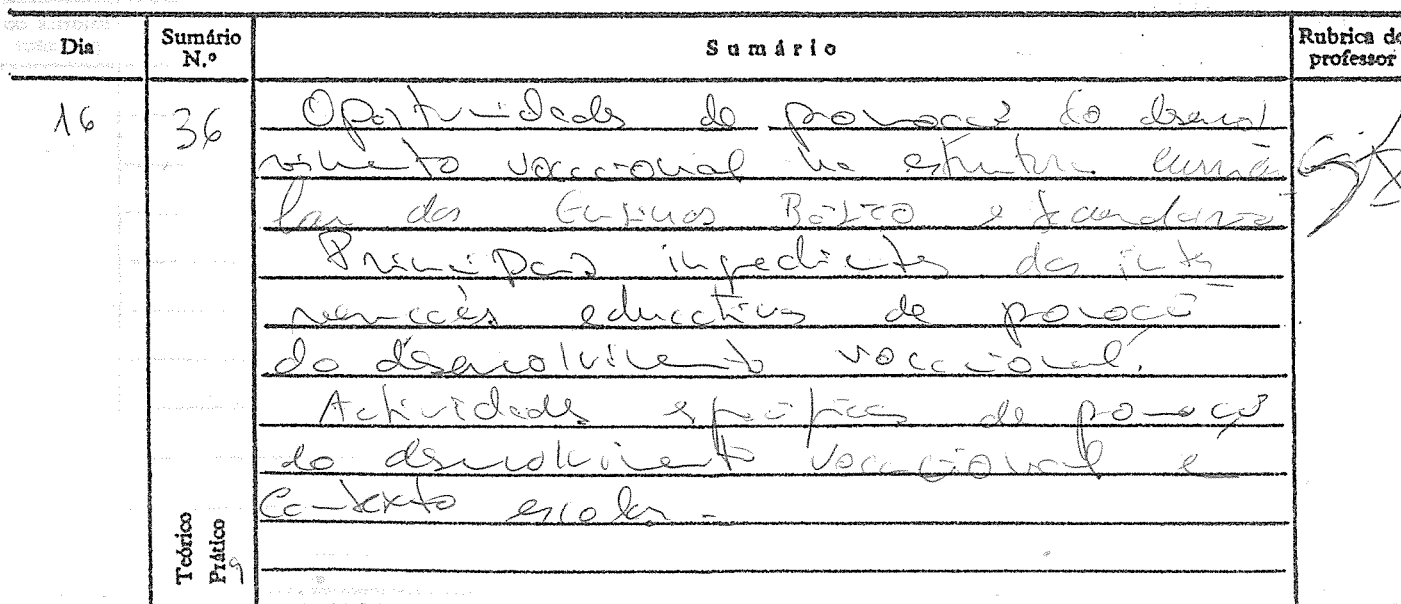 Dia Sumário N.º Sumário Rubrica do professor
16 36 Oportunidades de promoção do desenvol
vimento vocacional na estrutura curricu
lar dos Ensinos Básico e Secundário
Principais ingredientes das inter
venções educativas de promoção
do desenvolvimento vocacional.
Actividades específicas de promoção
do desenvolvimento vocacional em
Contexto escolar.
Teórico
Prático